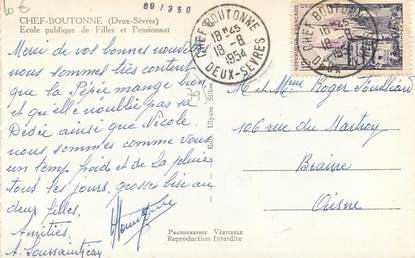 10€
89/350
CHEF-BOUTONNE (Deux-Sèvres)
Ecole publique de Filles et Pensionnat
Merci de vos bonnes nouvelles
nous sommes très contents
que la Pépée mange bien
et qu'elle n'oublie pas sa
Dédée ainsi que Nicole
nous sommes comme vous
un temps froid et de la pluie
tous les jours, grosses bises aux
deux filles,
Amitiés,
CHEF BOUTONNE
18H45
18-8
1954
DEUX-SEVRES
CHEF BOUTONNE
18H45
18-8
1954
Edit. Ulysse
M et Mme Roger
106 rue du Martroy
Braine
Aisne
PHOTOGRAPHIE VÉRITABLE
Reproduction Interdite